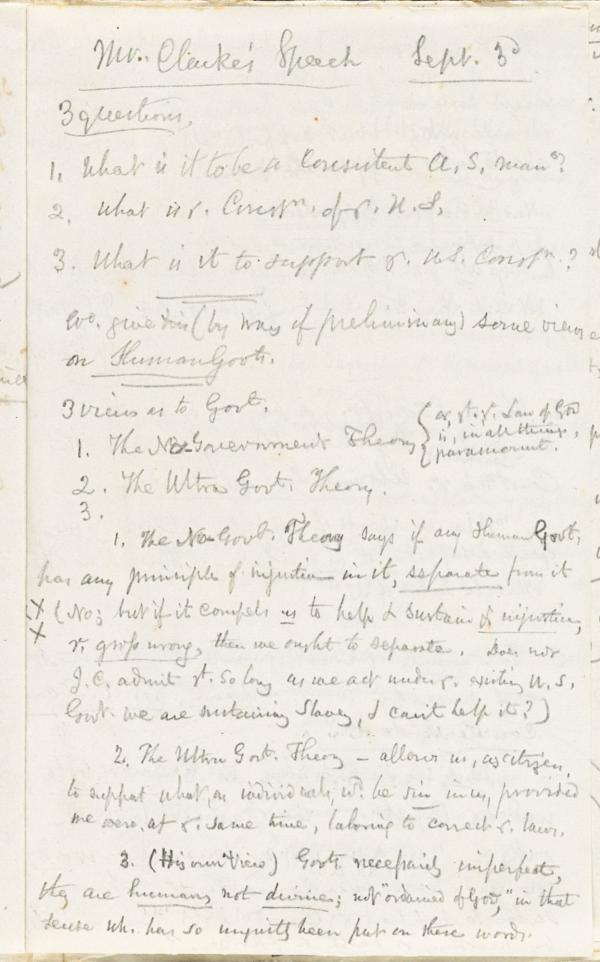 Mr. Clarke's Speech Sept. 3d
3 questions.
1. What is it to be a Consistent A. S. man?
2. What is ye. Constn. of ye. U. S.
3. What is it to support ye. U.S. Constn.?
give this (by way of preliminary) some views
on Human Govts.
3 views as to Govt.
1. The No-Government Theory { or, yt. ye. Law of God
is, in all things,
paramount.
2. The Ultra Govt. Theory.
3.
1. The No-Govt. Theory says if any Human Govt.
has any principle of injustice in it, separate from it
X (No; but if it compels us to help & sustain injustice,
X gross wrong, then we ought to separate. Does not
J. C. admit yt. so long as we act under ye. existing U. S.
Govt. we are sustaining Slavery, I can't help it?)
2. The Ultra Govt. Theory – allows us, as citizens,
to support what, as individuals, wd. be sin in us, provided
we were, at ye. same time, laboring to correct ye. laws.
3. (His own View) Govts. necessarily imperfect,
they are human, not divine; not "ordained of God," in that
sense wh. has so been put on these words.